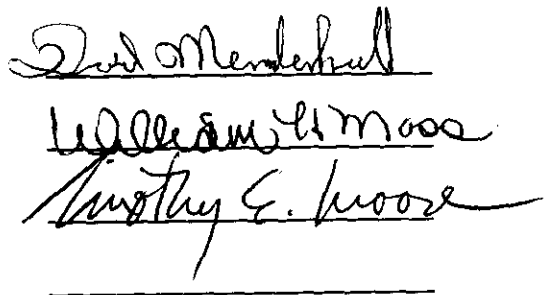 Mendenhall
William H Moss
Timothy E. Moore